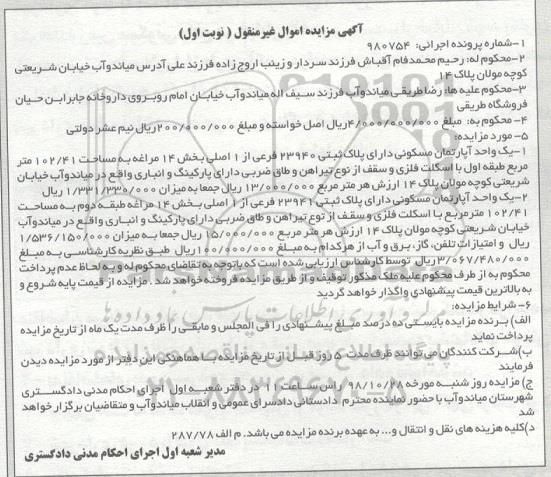 آگهی مزایده اموال غیرمنقول ( نوبت اول)
۱-شماره پرونده اجرائی: ۹۸۰۷۵۴
۲-محکوم له: رحیم محمدفام آقباش فرزند سردار و زینب اروج زاده فرزند علی آدرس میاندوآب خیابان شریعتی
کوچه مولان پلاک ۱۴
۳-محکوم علیه ها: رضا طریقی میاندوآب فرزند سیف اله میاندوآب خیابان امام روبروی داروخانه جابر ابن حیان
فروشگاه طریقی
۴- محکوم به: مبلغ ۴/۰۰۰/۰۰۰/۰۰۰ریال اصل خواسته و مبلغ ۲۰۰/۰۰۰/۰۰۰ریال نیم عشر دولتی
۵- مورد مزایده:
۱-یک واحد آپارتمان مسکونی دارای پلاک ثبتی ۲۳۹۴۰ فرعی از ۱ اصلی بخش ۱۴ مراغه به مساحت ۱۰۲/۴۱ متر
مربع طبقه اول با اسکلت فلزی و سقف از نوع تیرآهن و طاق ضربی دارای پارکینگ و انباری واقع در میاندوآب خیابان
شریعتی کوچه مولان پلاک ۱۴ ارزش هر متر مربع ۱۳/۰۰۰/۰۰۰ ریال جمعا به میزان ۱/۳۳۱/۳۳۰/۰۰۰ ریال
۲-یک واحد آپارتمان مسکونی دارای پلاک ثبتی ۲۳۹۴۱ فرعی از ۱ اصلی بخش ۱۴ مراغه طبقه دوم به مساحت
۱۰۲/۴۱ مترمربع با اسکلت فلزی و سقف از نوع تیرآهن و طاق ضربی دارای پارکینگ و انباری واقع در میاندوآب
خیابان شریعتی کوچه مولان پلاک ۱۴ ارزش هر متر مربع ۱۵/۰۰۰/۰۰۰ ریال جمعا به میزان ۱/۵۳۶/۱۵۰/۰۰۰
ریال و امتیازات تلفن، گاز، برق و آب از هرکدام به مبلغ ۱۰۰/۰۰۰/۰۰۰ریال طبق نظریه کارشناسی به مبلغ
۳/۰۶۷/۴۸۰/۰۰۰ریال توسط کارشناس ارزیابی شده است که باتوجه به تقاضای محکوم له و به لحاظ عدم پرداخت
محکوم به از طرف محکوم علیه ملک مذکور توقیف و از طریق مزایده فروخته خواهد شد. مزایده از قیمت پایه شروع و
به بالاترین قیمت پیشنهادی واگذار خواهد گردید
۶- شرایط مزایده:
الف) برنده مزایده بایستی ده درصد مبلغ پیشنهادی را فی المجلس و مابقی را ظرف مدت یک ماه از تاریخ مزایده
پرداخت نماید
ب)شرکت کنندگان می توانند ظرف مدت ۵ روز قبل از تاریخ مزایده با هماهنگی این دفتر از مورد مزایده دیدن
فرمایند
ج) مزایده روز شنبه مورخه ۹۸/۱۰/۲۸ راس ساعت ۱۱ در دفتر شعبه اول اجرای احکام مدنی دادگستری
شهرستان میاندوآب با حضور نماینده محترم دادستانی دادسرای عمومی و انقلاب میاندوآب و متقاضیان برگزار خواهد
شد
د)کلیه هزینه های نقل و انتقال و... به عهده برنده مزایده می باشد. م الف ۲۸۷/۷۸
مدیر شعبه اول اجرای احکام مدنی دادگستری